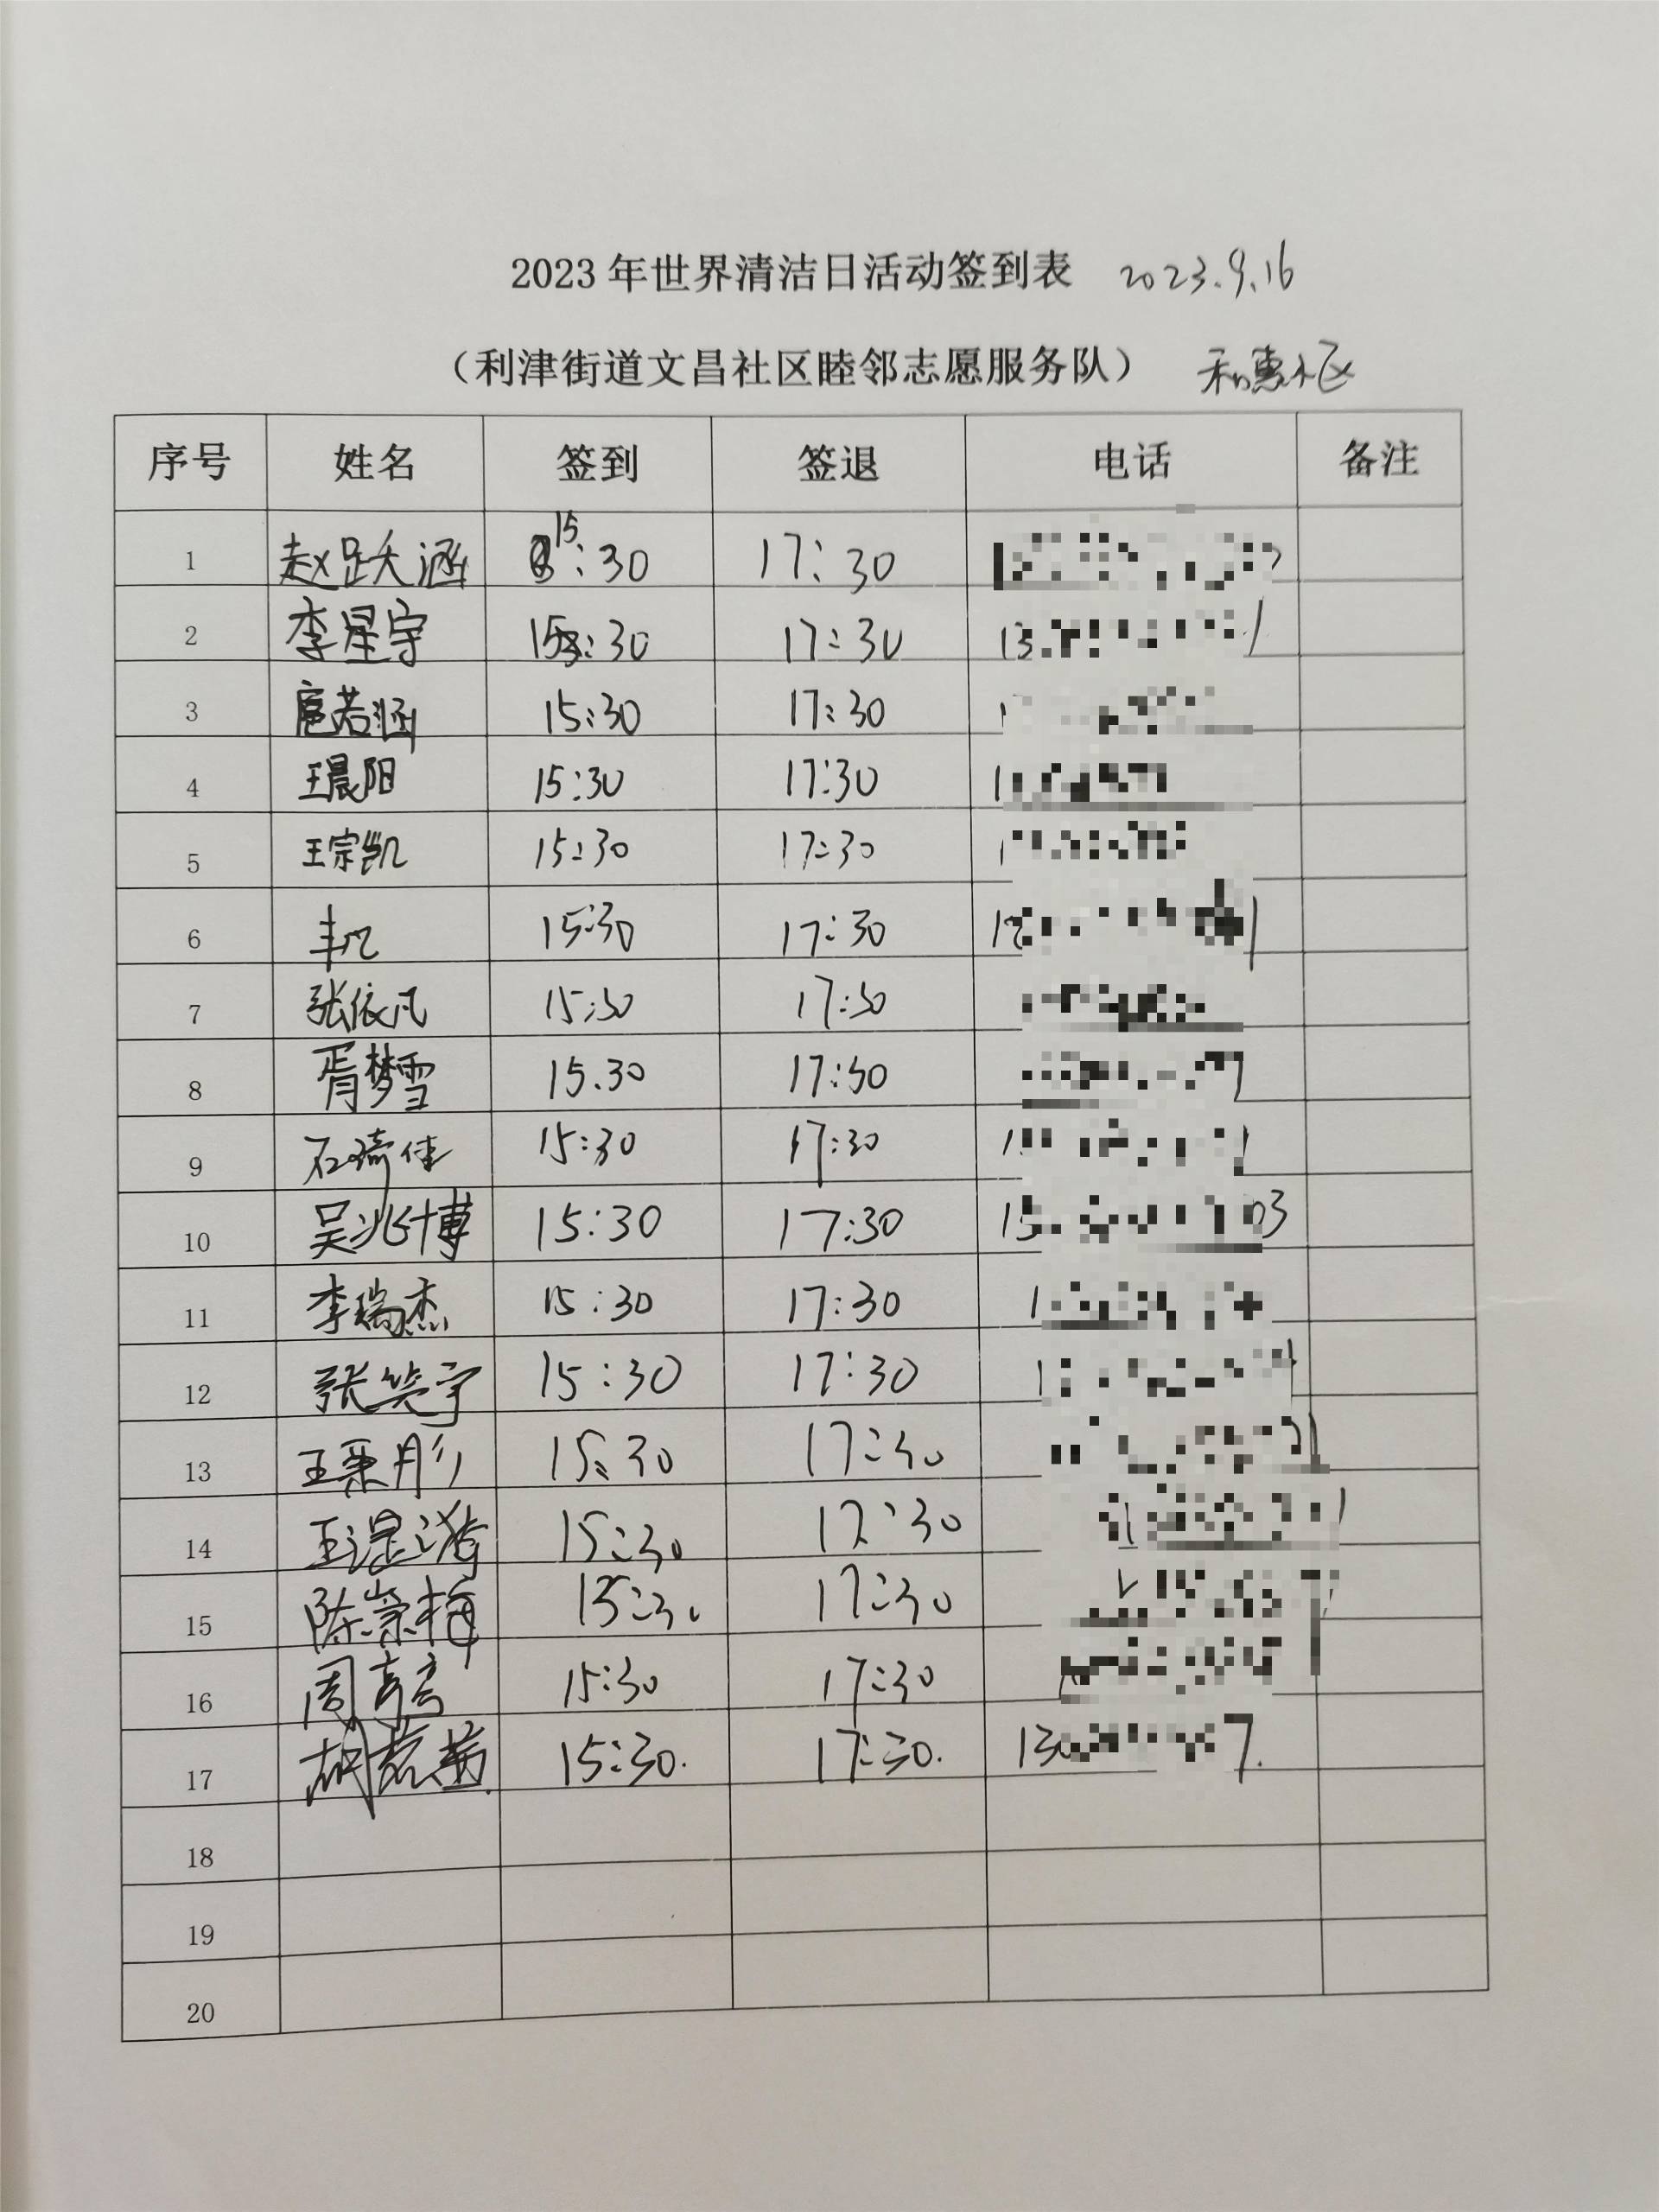 2023年世界清洁日活动签到表 2023.9.16
（利津街道文昌社区睦邻志愿服务队） 和惠社区
序号 姓名 签到 签退 电话 备注
1 赵跃涵 15:30 17:30
2 李星宇 15:30 17:30 13
3 扈若涵 15:30 17:30 1
4 王晨阳 15:30 17:30 1
5 王宗凯 15:30 17:30 1
6 丰凡 15:30 17:30 1
7 张依凡 15:30 17:30
8 胥梦雪 15.30 17:30
9 石琦佳 15:30 17:30 1
10 吴兆博 15:30 17:30 15 03
11 李瑞杰 15:30 17:30 1
12 张笑宇 15:30 17:30 1
13 15:30 17:30
14 15:30 17:30
15 陈崇梅 15:30 17:30
16 15:30 17:30
17 15:30. 17:30. 13 7.
18
19
20